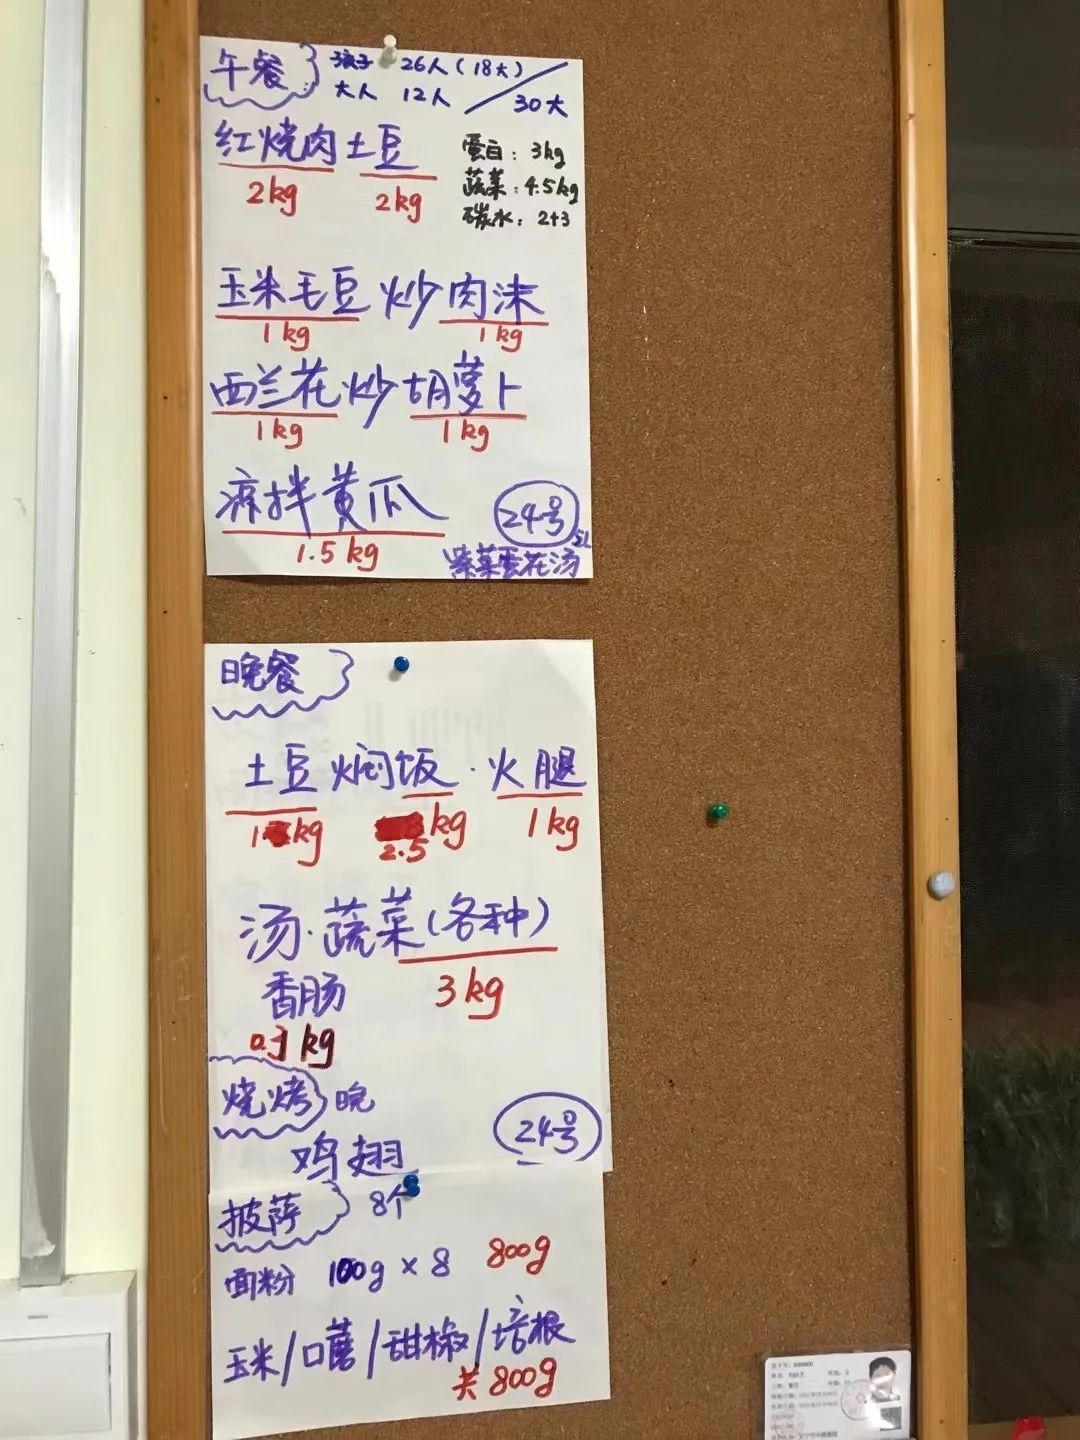 午餐 孩子 26人(18大)
大人 12人 / 30大
红烧肉土豆
2kg 2kg
蛋白：3kg
蔬菜：4.5kg
碳水：2+3
玉米毛豆炒肉沫
1kg 1kg
西兰花炒胡萝卜
1kg 1kg
凉拌黄瓜
1.5kg
24号
紫菜蛋花汤
晚餐
土豆焖饭·火腿
1kg 2.5kg 1kg
汤·蔬菜(各种)
3kg
香肠
kg
烧烤 晚
鸡翅
24号
披萨 8个
面粉 100g×8 800g
玉米/口蘑/甜椒/培根
共800g